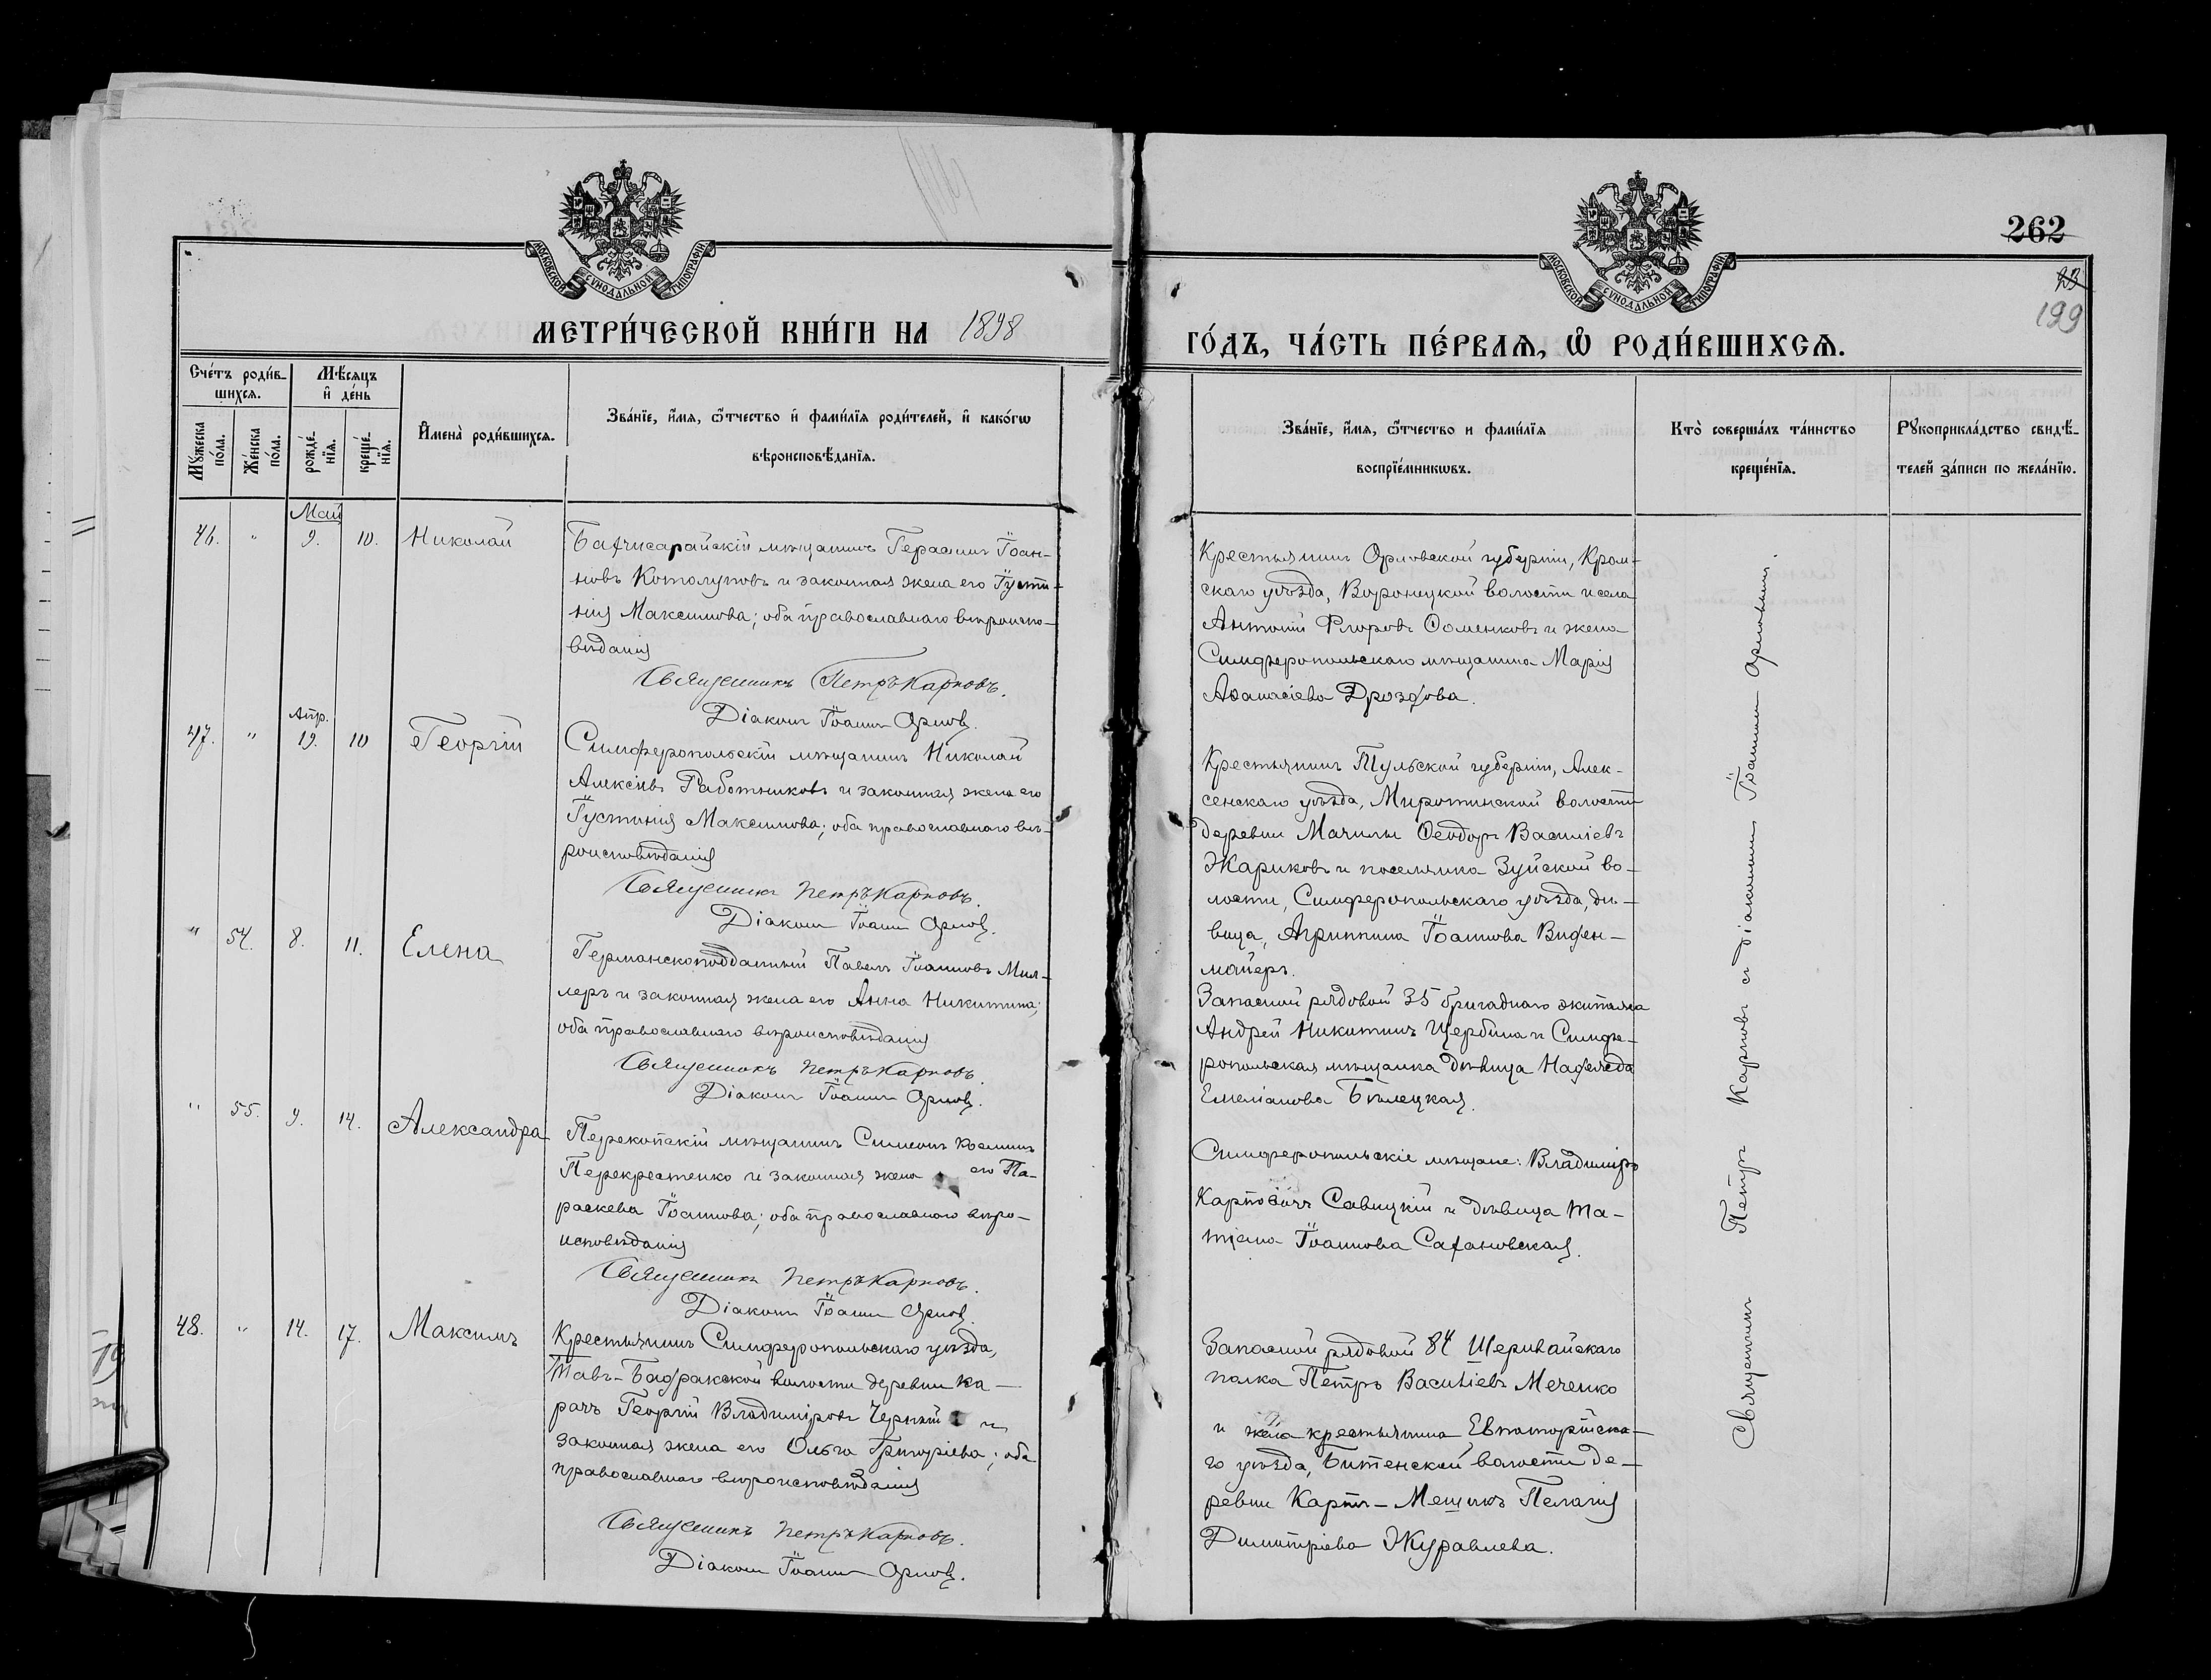 262
199
МОСКОВСКОЙ СѴНОДАЛЬНОЙ ТИПОГРАФІИ
МОСКОВСКОЙ СѴНОДАЛЬНОЙ ТИПОГРАФІИ
МЕТРИ́ЧЕСКОЙ КНИ́ГИ НА 1898
ГО́ДЪ, ЧА́СТЬ ПЕ́РВАѦ, Ѽ РОДИ́ВШИХСѦ.
Сче́тъ роди́в-
шихсѧ.
Мѣ́сѧцъ
и҆ де́нь
Мꙋ́жеска
по́ла.
Же́нска
по́ла.
рожде́-
нїѧ.
креще́-
нїѧ.
И҆мена̀ роди́вшихсѧ.
Зва́нїе, и҆́мѧ, ѻ҆́тчество и҆ фами́лїѧ роди́телей, и҆ како́гѡ
вѣроисповѣ́данїѧ.
Зва́нїе, и҆́мѧ, ѻ҆́тчество и фами́лїѧ
воспрїе́мникѡвъ.
Кто̀ соверша́лъ та́инство
креще́нїѧ.
Рꙋкоприкла́дство свидѣ́-
телей за́писи по жела́нїю.
Май
46. " 9. 10. Николай
Бахчисарайскій мѣщанинъ Герасимъ Іоан-
новъ Котолуповъ и законная жена его Іусти-
нія Максимова; оба православнаго вѣроиспо-
вѣданія
Священникъ Петръ Карповъ.
Діаконъ Іоаннъ Орловъ.
Крестьянинъ Орловской губерніи, Кром-
скаго уѣзда, Воронецкой волости и села
Антоній Флоровъ Ѳоменковъ и жена
Симферопольскаго мѣщанина Марія
Аѳанасіева Дроздова.
Апр.
47. " 19. 10 Георгій
Симферопольскій мѣщанинъ Николай
Алексѣевъ Работниковъ и законная жена его
Іустинія Максимова; оба православнаго вѣ-
роисповѣданія
Священникъ Петръ Карповъ.
Діаконъ Іоаннъ Орловъ.
Крестьянинъ Тульской губерніи, Алек-
сенскаго уѣзда, Миротинской волости
деревни Мачилы Ѳеодоръ Василіевъ
Жариковъ и поселянка Зуйской во-
лости, Симферопольскаго уѣзда, дѣ-
вица, Агриппина Іоаннова Виден-
майеръ.
" 54. 8. 11. Елена
Германскоподданный Павелъ Іоанновъ Мил-
леръ и законная жена его Анна Никитина;
оба православнаго вѣроисповѣданія
Священникъ Петръ Карповъ.
Діаконъ Іоаннъ Орловъ.
Запасной рядовой 35 бригаднаго экипажа
Андрей Никитинъ Щербина и Симфе-
ропольская мѣщанка дѣвица Надежда
Емеліанова Бѣлецкая.
" 55. 9. 14. Александра
Перекопскій мѣщанинъ Симеонъ Косминъ
Перекрестенко и законная жена его Па-
раскева Іоаннова; оба православнаго вѣро-
исповѣданія
Священникъ Петръ Карповъ.
Діаконъ Іоаннъ Орловъ.
Симферопольскіе мѣщане: Владиміръ
Карповичъ Савицкій и дѣвица Та-
тіана Іоаннова Сахановская.
48. " 14. 17. Максимъ
Крестьянинъ Симферопольскаго уѣзда,
Тавъ-Бадракской волости деревни Ка-
рачъ Георгій Владиміровъ Черный и
законная жена его Ольга Григоріева; оба
православнаго вѣроисповѣданія
Священникъ Петръ Карповъ.
Діаконъ Іоаннъ Орловъ.
Запасной рядовой 84 Ширванскаго
полка Петръ Василіевъ Меченко
и жена крестьянина Евпаторійска-
го уѣзда, Битенской волости де-
ревни Картъ-Мещикъ Пелагія
Димитріева Журавлева.
Священникъ Петръ Карповъ и діаконъ Іоаннъ Орловъ.